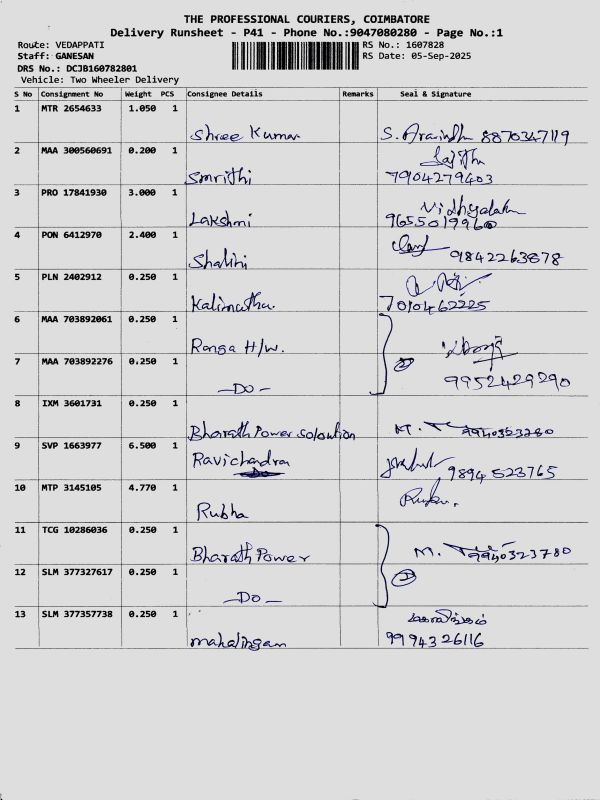 THE PROFESSIONAL COURIERS, COIMBATORE
Delivery Runsheet - P41 - Phone No.:9047080280 - Page No.:1
Route: VEDAPPATI RS No.: 1607828
Staff: GANESAN RS Date: 05-Sep-2025
DRS No.: DCJB160782801
Vehicle: Two Wheeler Delivery
S No Consignment No Weight PCS Consignee Details Remarks Seal & Signature
1 MTR 2654633 1.050 1
Shree Kumar S. Aravindh 8870347119
2 MAA 300560691 0.200 1
Smrithi 7904279403
3 PRO 17841930 3.000 1 Vidhyalakshmi
Lakshmi 9655019960
4 PON 6412970 2.400 1
Shalini 9842263878
5 PLN 2402912 0.250 1
Kalimuthu 7010462225
6 MAA 703892061 0.250 1
Ranga H/W.
7 MAA 703892276 0.250 1 2
-Do- 9952429290
8 IXM 3601731 0.250 1
Bharath Power soloution M.
9 SVP 1663977 6.500 1
Ravichandra 9894523765
Do
10 MTP 3145105 4.770 1
Rubha
11 TCG 10286036 0.250 1
Bharath Power M. 9940323780
12 SLM 377327617 0.250 1 2
-Do-
13 SLM 377357738 0.250 1 மகாலிங்கம்
mahalingam 9994326116